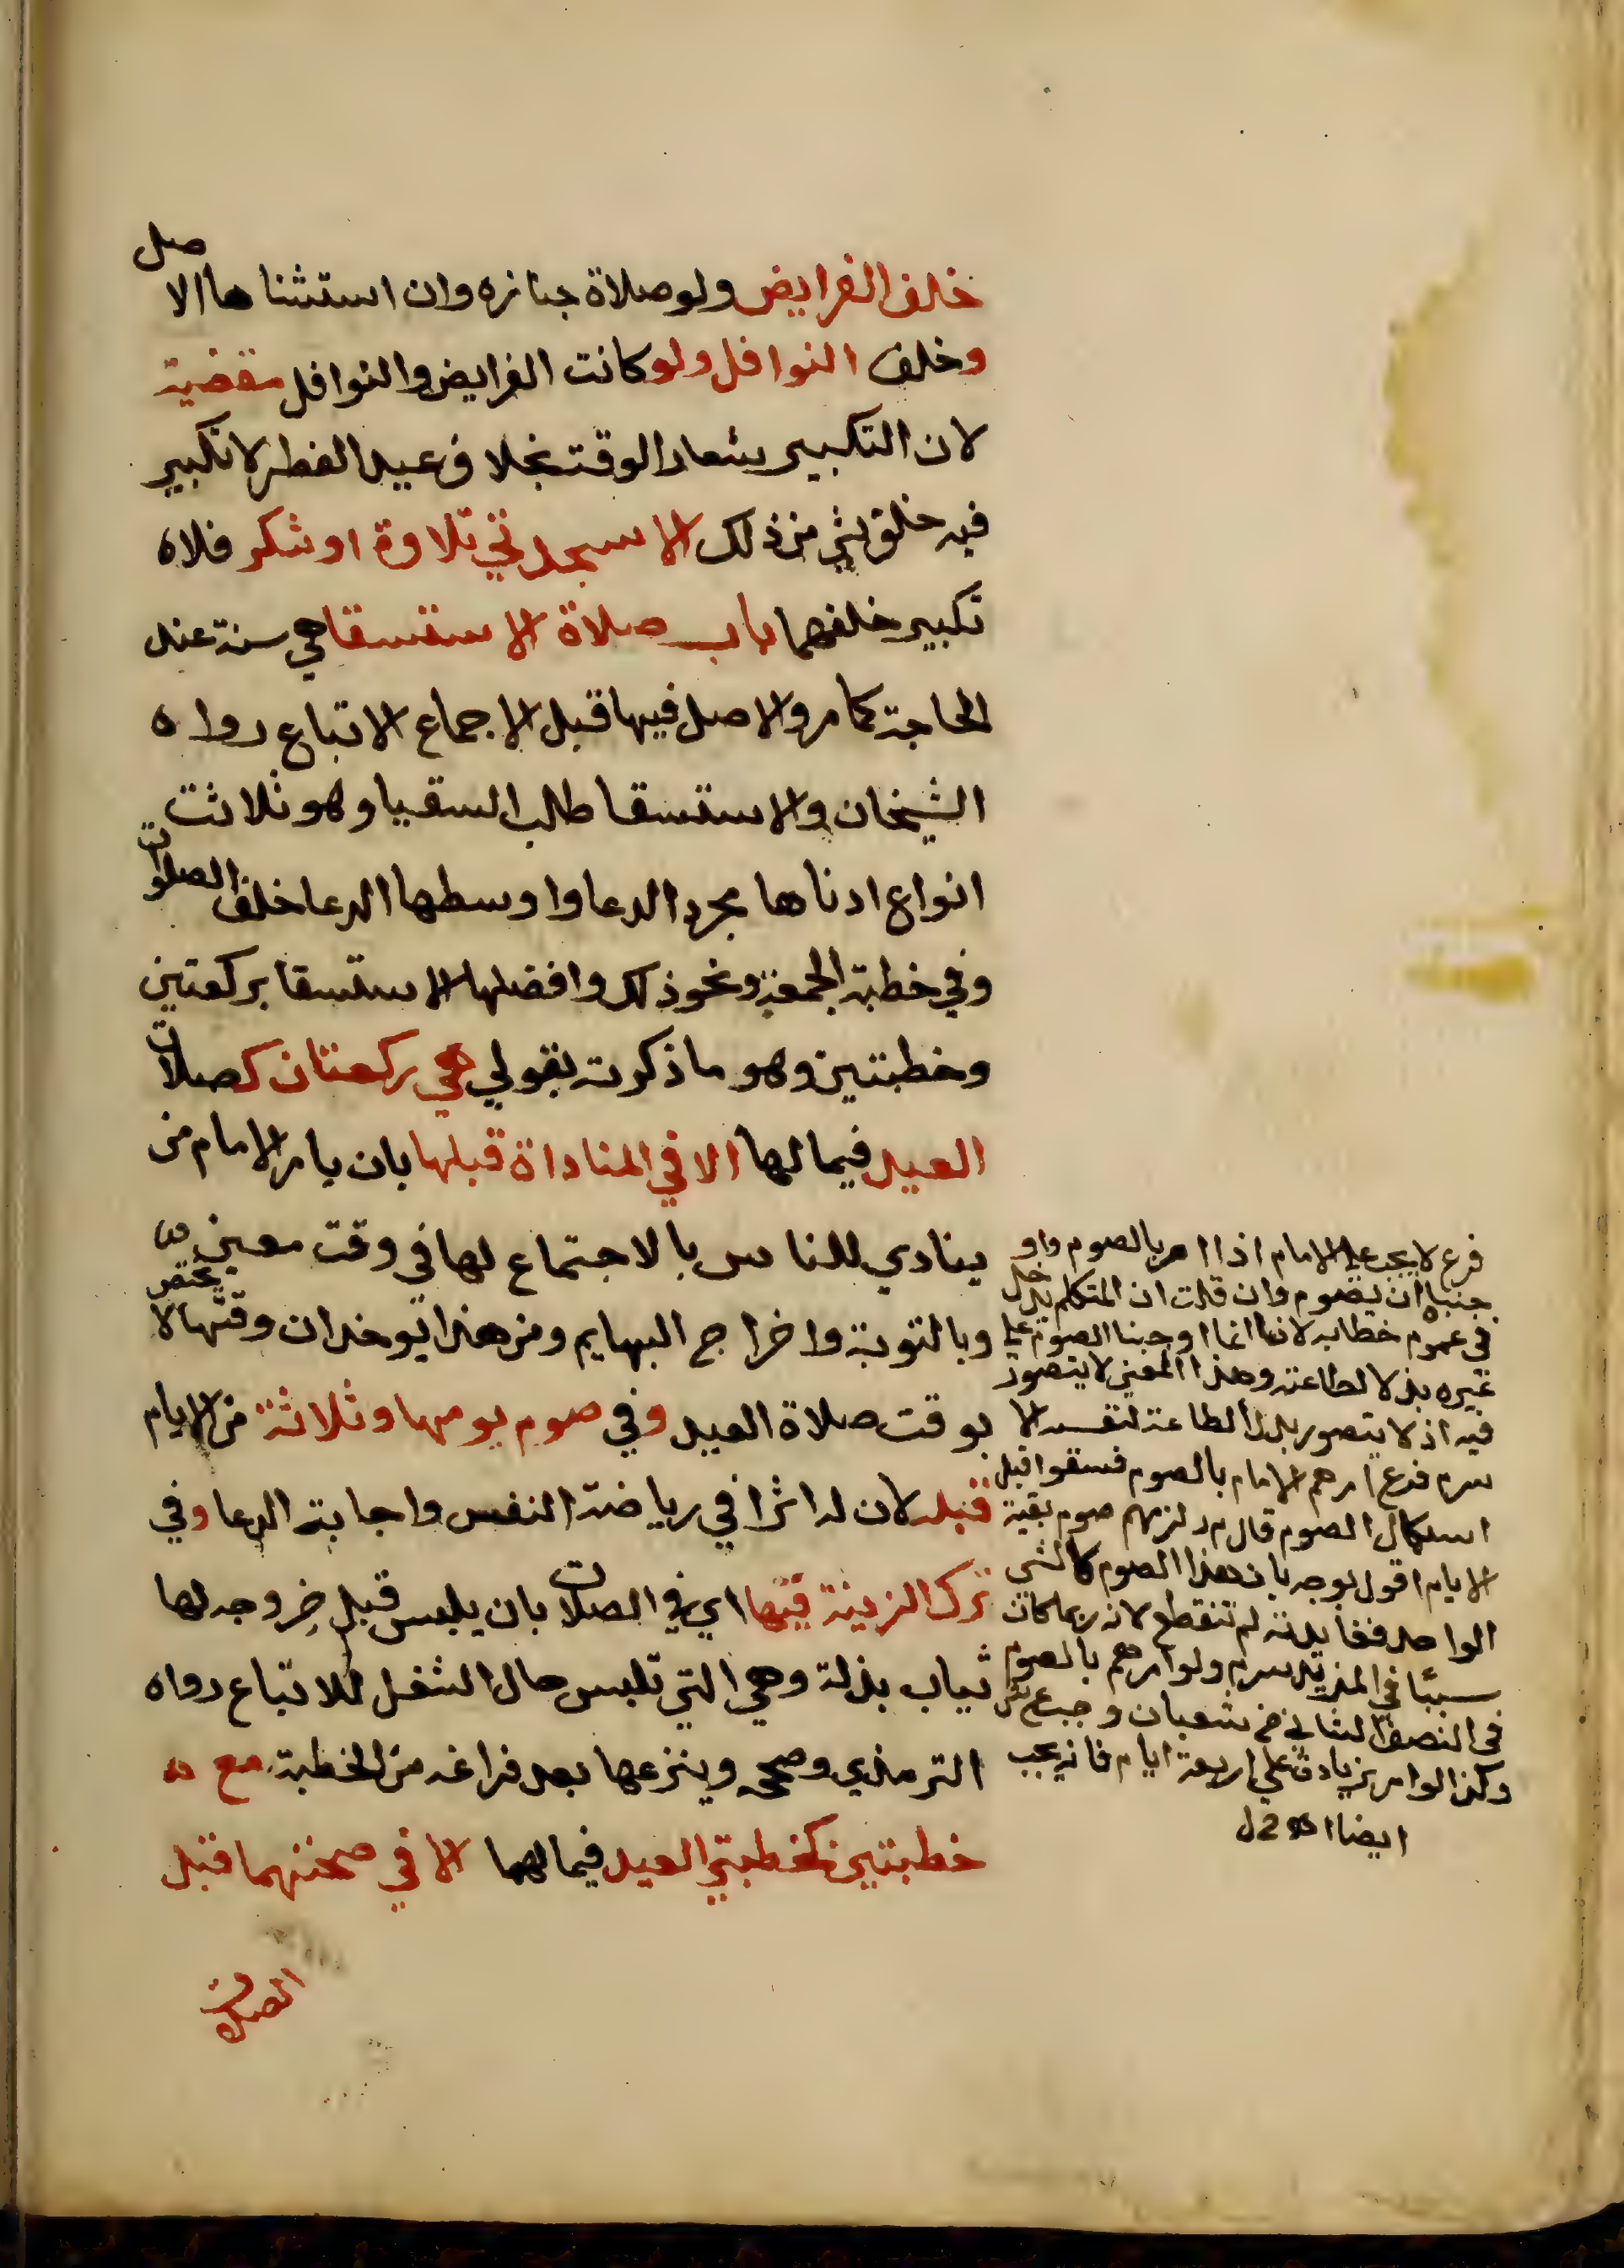 خلف الفرايض ولو صلاة جنازه وان استثناها الاصل
وخلف النوافل ولو كانت الفرايض والنوافل مقضية
لان التكبير شعار الوقت بخلا ف عيد الفطر لا تكبير
فيه خلف شي من ذلك الا سجدتي تلاوة او شكر فلا ه
تكبير خلفهما باب صلاة الاستسقا هي سنة عند
الحاجة كما مر والاصل فيها قبل الاجماع الاتباع رواه
الشيخان والاستسقا طلب السقيا وهو ثلاثت
انواع ادناها مجرد الدعا واوسطها الدعا خلف الصلوات
وفي خطبة الجمعة ونحو ذلك وافضلها الاستسقا بركعتين
وخطبتين وهو ما ذكرته بقولي هي ركعتان كصلات
العيد فيما لها الا في المناداة قبلها بان يامر الامام من
ينادي للناس بالاجتماع لها في وقت معين
وبالتوبة واخراج البهايم ومن هذا يوخد ان وقتها لا يختص
بوقت صلاة العيد وفي صوم يومها وثلاثة من الايام
قبله لان له اثرا في رياضة النفس واجابة الدعا وفي
ترك الزينة فيها اي في الصلات بان يلبس قبل خروجه لها
ثياب بذلة وهي التي تلبس حال الشغل للاتباع رواه
الترمذي وصححه وينزعها بعد فراغه من الخطبة مع
خطبتين كخطبتي العيد فيما لهما الا في صحتهما قبل
الصلات
فرع لا يجب على الامام اذا امر بالصوم واو
جنباه ان يصوم وان قلت ان المتكلم يدخل
في عموم خطابه لانا انما اوجبنا الصوم على
غيره بذلا لطاعته وهذا المعنى لا يتصور
فيه اذ لا يتصور بذل الطاعة لنفسه الا
سم فرع امرهم الامام بالصوم فسقوا قبل
استكمال الصوم قال م ر لزمهم صوم بقية
الايام اقول يوجه بان هذا الصوم كالشي
الواحد ففايدته لم تنقطع لانه ربما كان
سببا في المزيد سم ولو امرهم بالصوم
في النصف الثاني من شعبان وجب ع ش
وكذا لو امر بزيادة على اربعة ايام فانه يجب
ايضا اه ح ل